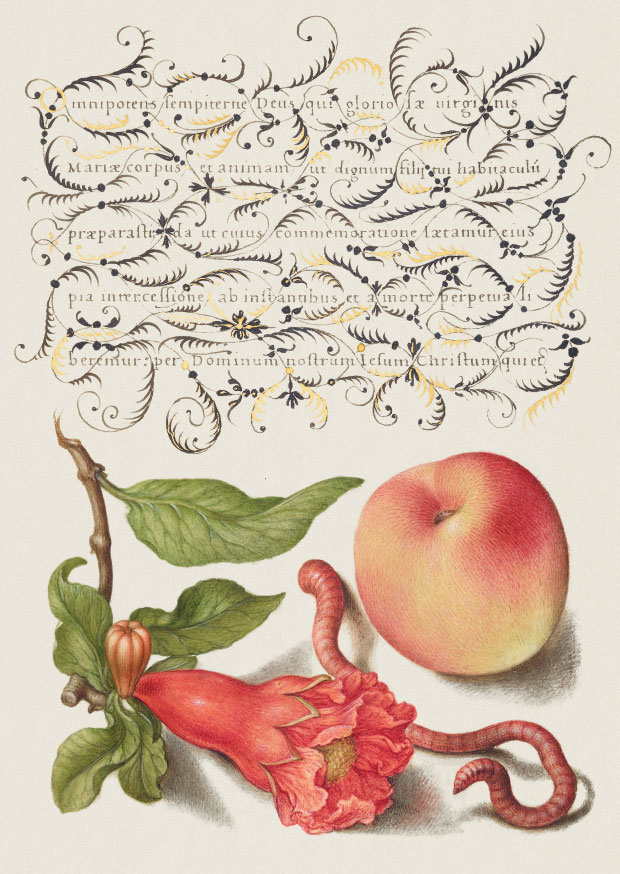 Omnipotens sempiterne Deus, qui gloriosæ virginis
Mariæ corpus et animam ut dignum filij tui habitaculū
præparasti da ut cuius commemoratione lætamur eius
pia intercessione, ab instantibus et a morte perpetua li
beremur: per Dominum nostrum Iesum Christum qui et